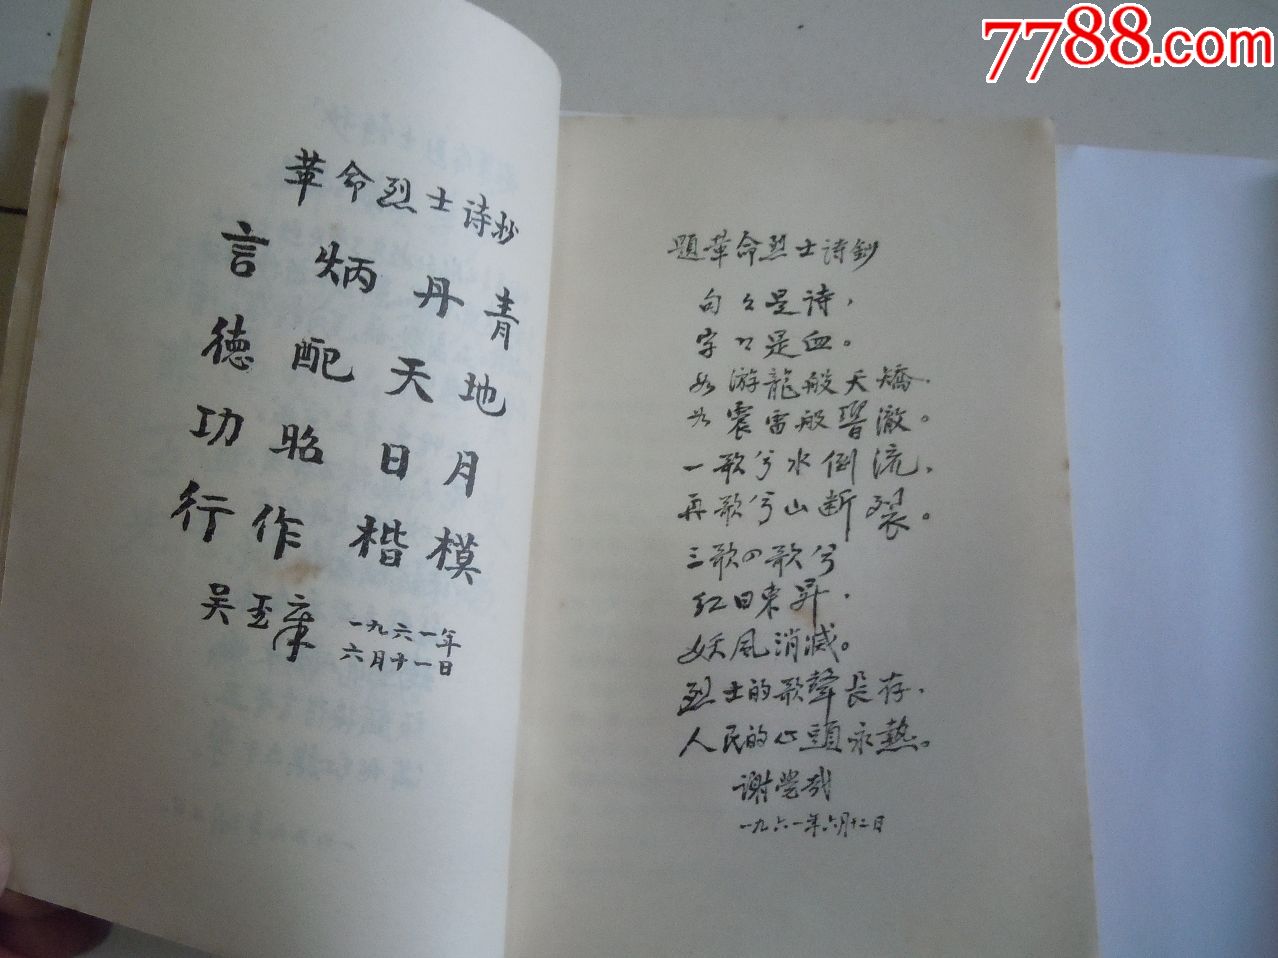 7788.com
革命烈士诗抄
言炳丹青
德配天地
功昭日月
行作楷模
吴玉章
一九六一年
六月十一日
題革命烈士詩鈔
句々是诗，
字々是血。
如游龍般夭矯，
如震雷般響澈。
一歌兮水倒流，
再歌兮山断裂。
三歌四歌兮
红日東昇，
妖風消滅。
烈士的歌聲長存，
人民的心頭永熱。
谢觉哉
一九六一年六月十二日